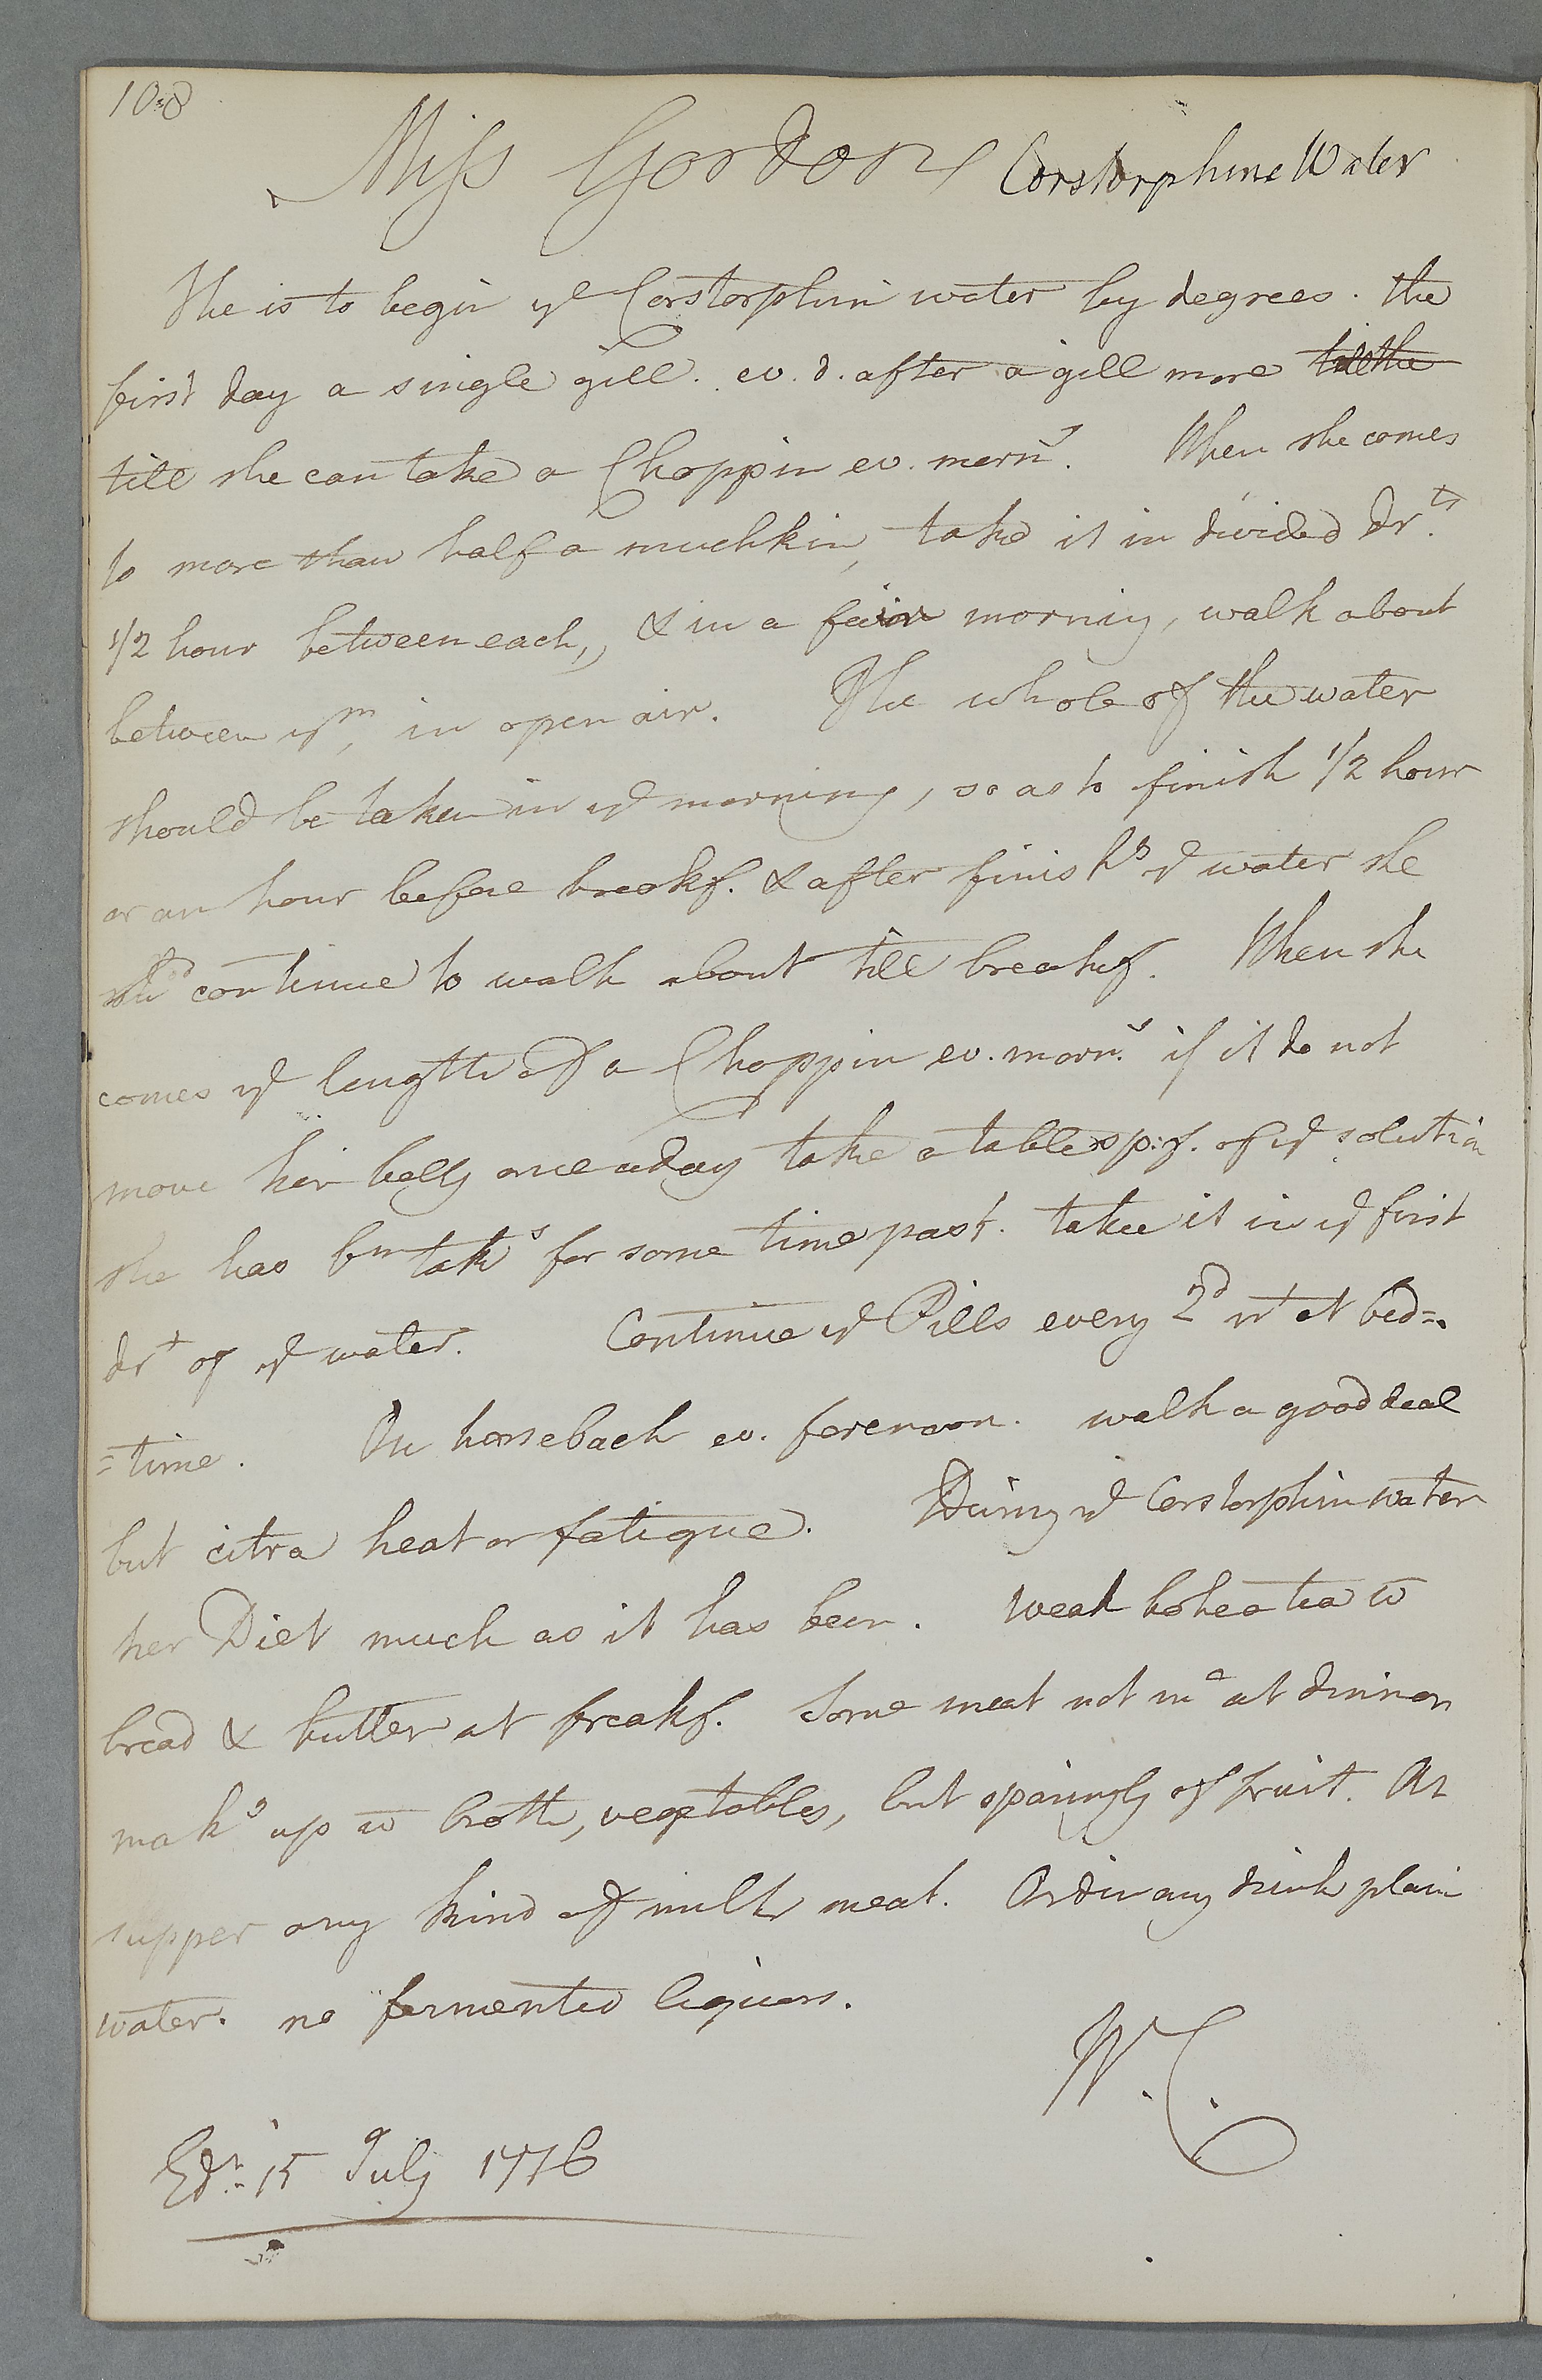 108
Miss Gordon Corstorphine Water
She is to begin ye Corstorphin water by degrees. the
first day a single gill. ev. d. after a gill more till the
till she can take a Choppin ev. morng. When she comes
to more than half a muchkin, take it in divided drts.
1/2 hour between each, & in a fair morning, walk about
between ym, in open air. The whole of the water
should be taken in ye morning, so as to finish 1/2 hour
or an hour before breakf. & after finishg ye water she
shd continue to walk about till breakf. When she
comes ye length of a Choppin ev. morng. if it do not
move her belly once a day take a table sp:f. of ye solution
she has bn takg for some time past. take it in ye first
drt of ye water. Continue ye Pills every 2d nt at bed=
=time. On horseback ev. forenoon. walk a good deal
but citra heat or fatigue. During ye Corstorphin water
her Diet much as it has been. Weak bohea tea w
bread & butter at breakf. Some meat not me at dinner
makg up w broth, vegetables, but sparingly of fruit. At
supper any kind of milk meat. Ordinary drink plain
water. no fermented liquors.
W. C.
Edr. 15 July 1776